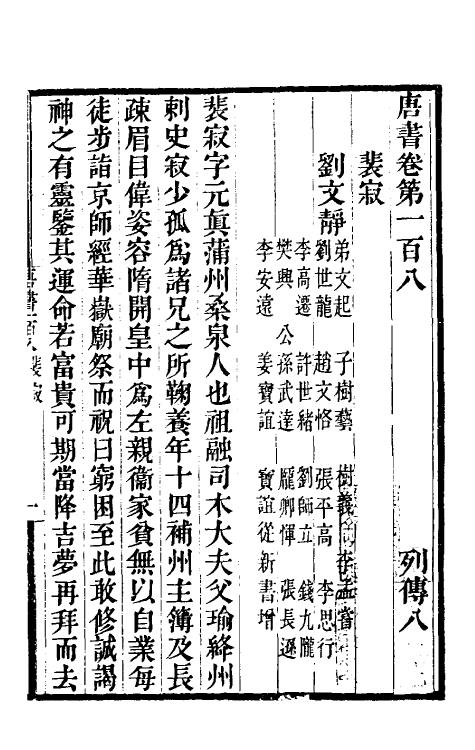 唐書卷第一百八 列傳八
裴寂
劉文靜 弟文起 子樹藝 樹義 李孟嘗
劉世龍 趙文恪 張平高 李思行
李高遷 許世緒 劉師立 錢九隴
樊興 公孫武達 龐卿惲 張長遜
李安遠 姜寶誼 寶誼從新書增
裴寂字元眞蒲州桑泉人也祖融司木大夫父瑜絳州
刺史寂少孤爲諸兄之所鞠養年十四補州主簿及長
疎眉目偉姿容隋開皇中爲左親衞家貧無以自業每
徒步詣京師經華嶽廟祭而祝曰窮困至此敢修誠謁
神之有靈鑒其運命若富貴可期當降吉夢再拜而去
唐書一百八 裴寂 一